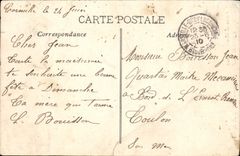 le 24 Juin
CARTE POSTALE
Correspondance
Cher Jean
Toute la maisonnée
te souhaite une bonne
fête à Dimanche
Ta mère qui t'aime
L. Bouisson
Monsieur Bouisson Jean
Quartier Maître Mécanicien
à Bord de L'Ernest Renan
Toulon